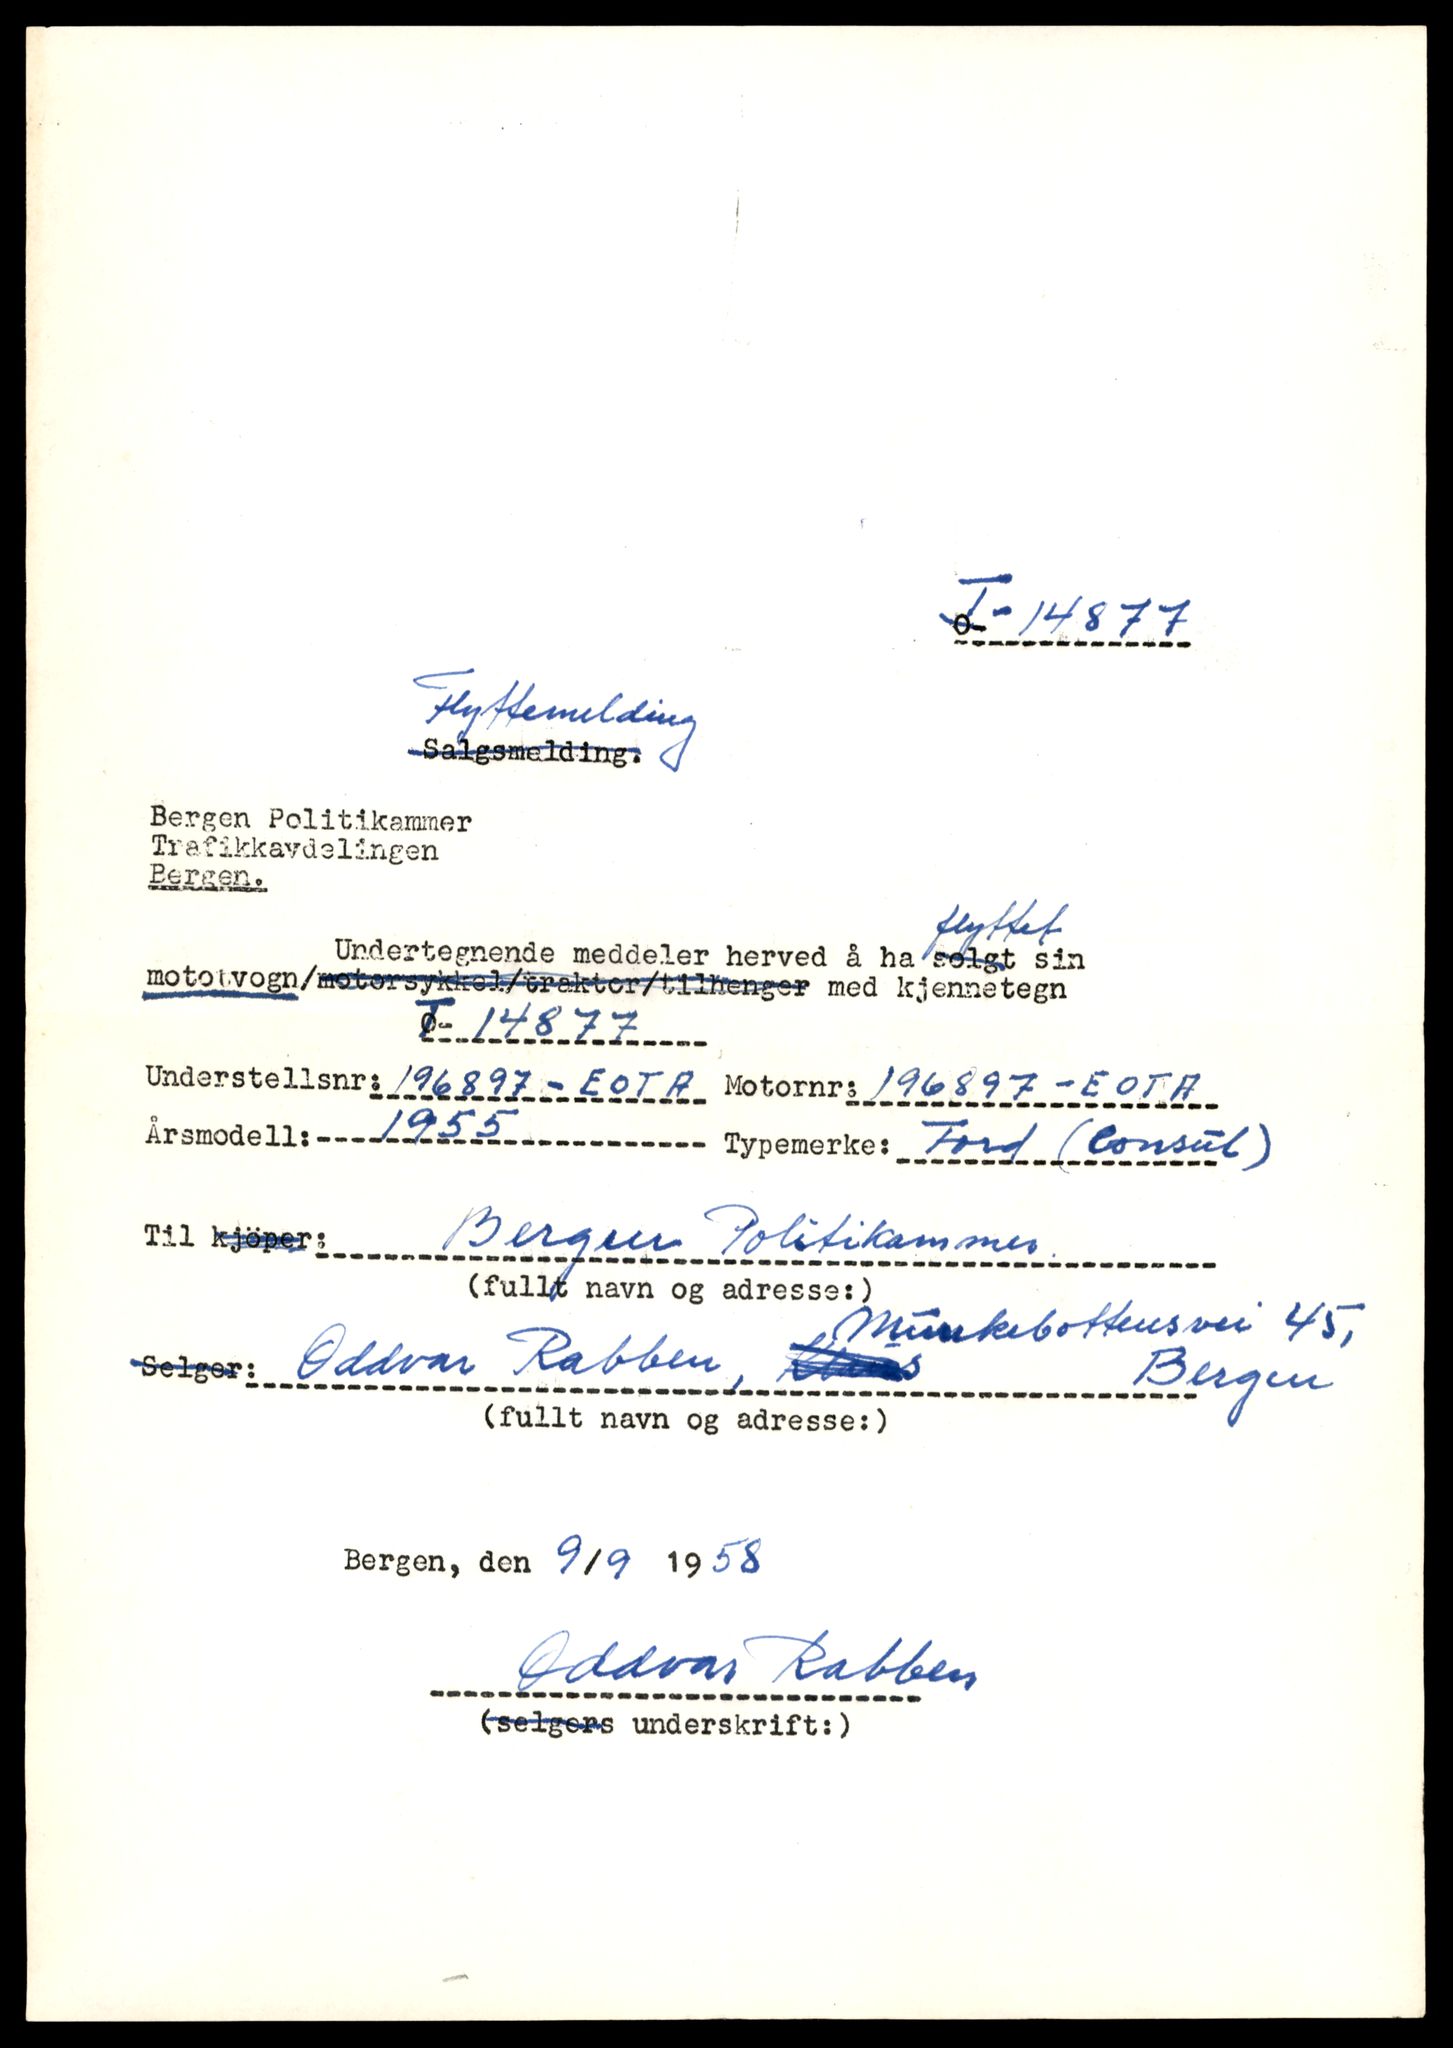 T- 14877
O-
Flyttemelding
Salgsmelding.
Bergen Politikammer
Trafikkavdelingen
Bergen.
flyttet
Undertegnende meddeler herved å ha solgt sin
motorvogn/motorsykkel/traktor/tilhenger med kjennetegn
T- 14877
Understellsnr: 196897 - EOTA Motornr: 196897 - EOTA
Årsmodell: 1955 Typemerke: Ford (Consul)
Til kjöper: Bergen Politikammer.
(fullt navn og adresse:)
Munkebottensvei 45,
Selger: Oddvar Rabben, Bergen
(fullt navn og adresse:)
Bergen, den 9/9 1958
Oddvar Rabben
(selgers underskrift:)